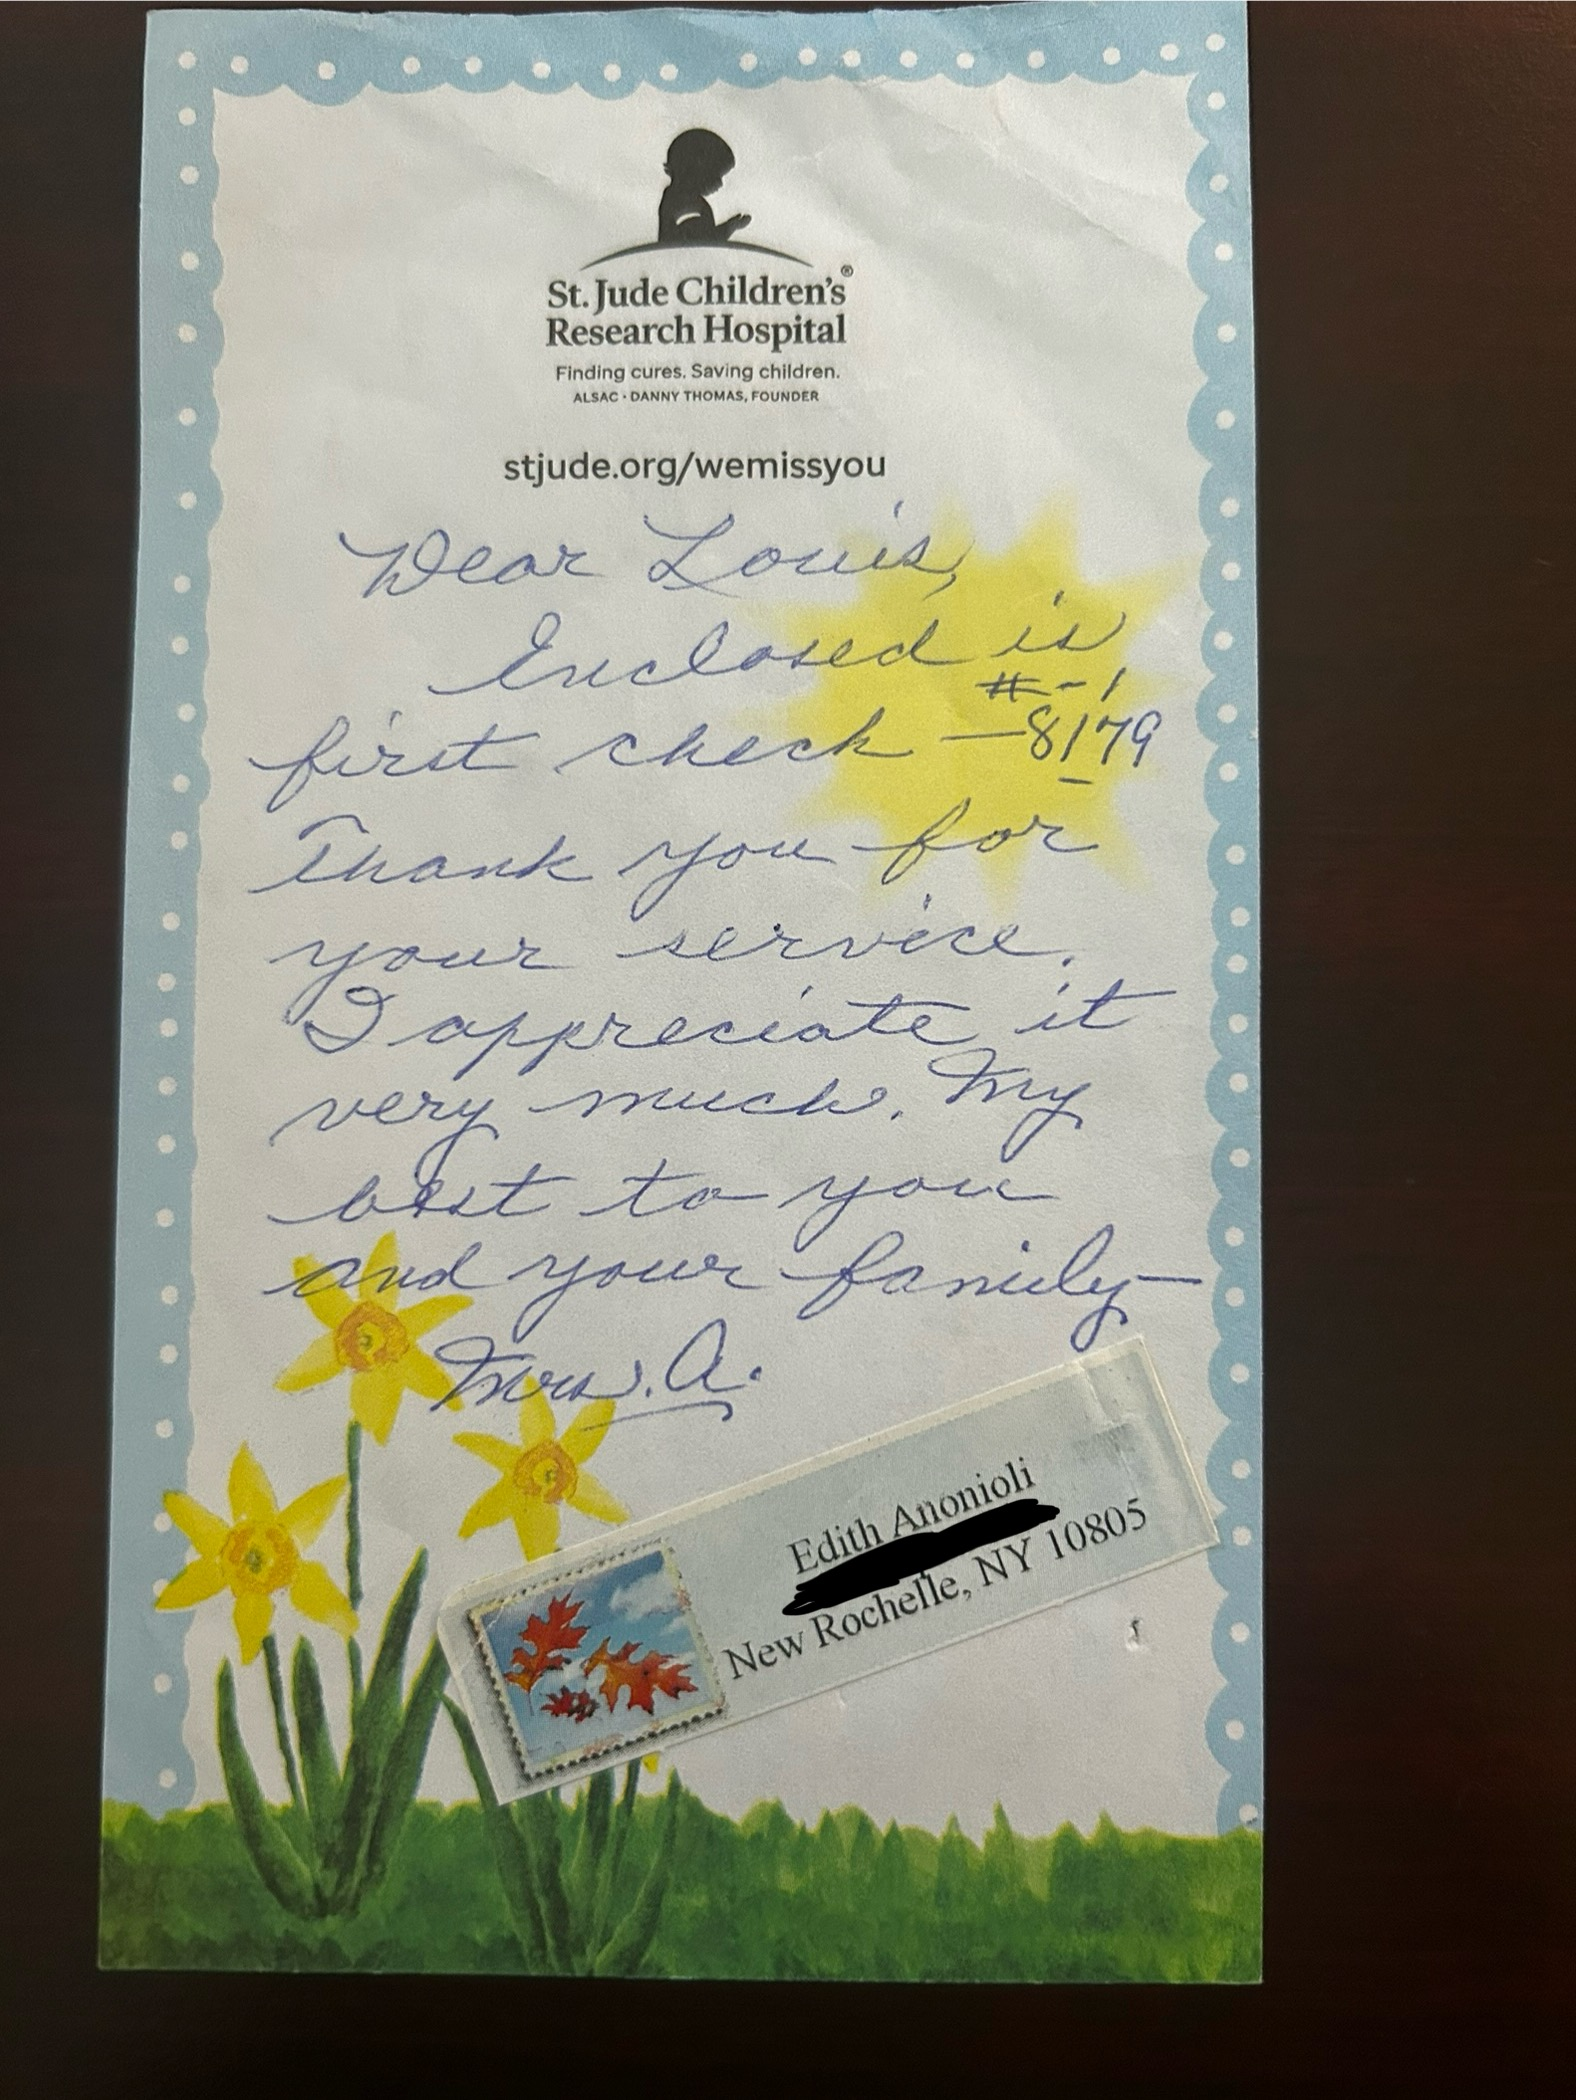 St. Jude Children's®
Research Hospital
Finding cures. Saving children.
ALSAC · DANNY THOMAS, FOUNDER
stjude.org/wemissyou
Dear Louis,
Enclosed is
#-1
first check — 8179
Thank you for
your service.
I appreciate it
very much. My
best to you
and your family—
Mrs. A.
Edith Anonioli
New Rochelle, NY 10805